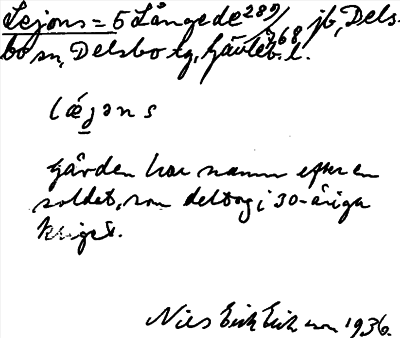 Lejons = 5 Långede 289/768 jb, Dels-
bo sn, Delsbo tg, Gävleb. l.
læjɔns
Gården har namn efter en
soldat, som deltog i 30-åriga
kriget.
Nils Erik Eriksson 1936.